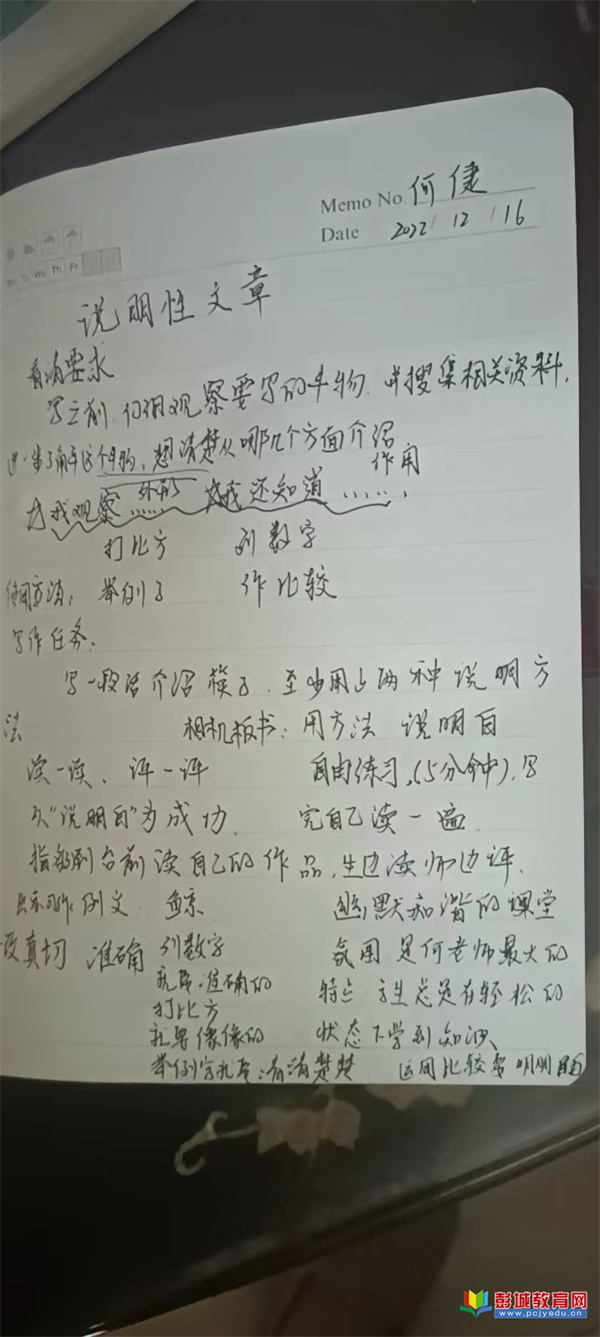 Memo No. 何健
Date 2022/12/16
We Th Fr
说明性文章
看清要求
写之前,仔细观察要写的事物.并搜集相关资料,
进一步了解这个事物,想清楚从哪几个方面介绍
作用
我观察…… 外形 我还知道……
打比方 列数字
使用方法: 举例子 作比较
写作任务:
写一段话介绍筷子.至少用上两种说明方
法 相机板书:用方法 说明白
读一读、评一评 自由练习,(5分钟),写
以"说明白"为成功. 完自己读一遍.
指名到台前读自己的作品,生边读师边评.
出示习作例文 鲸 幽默和谐的课堂
真切 准确 列数字 氛围是何老师最大的
就要准确的 特点 学生总是在轻松的
打比方
就要像像的 状态下学到知识
举例子就要:清清楚楚 运用比较要明明白
彭城教育网
www.pcjyedu.cn